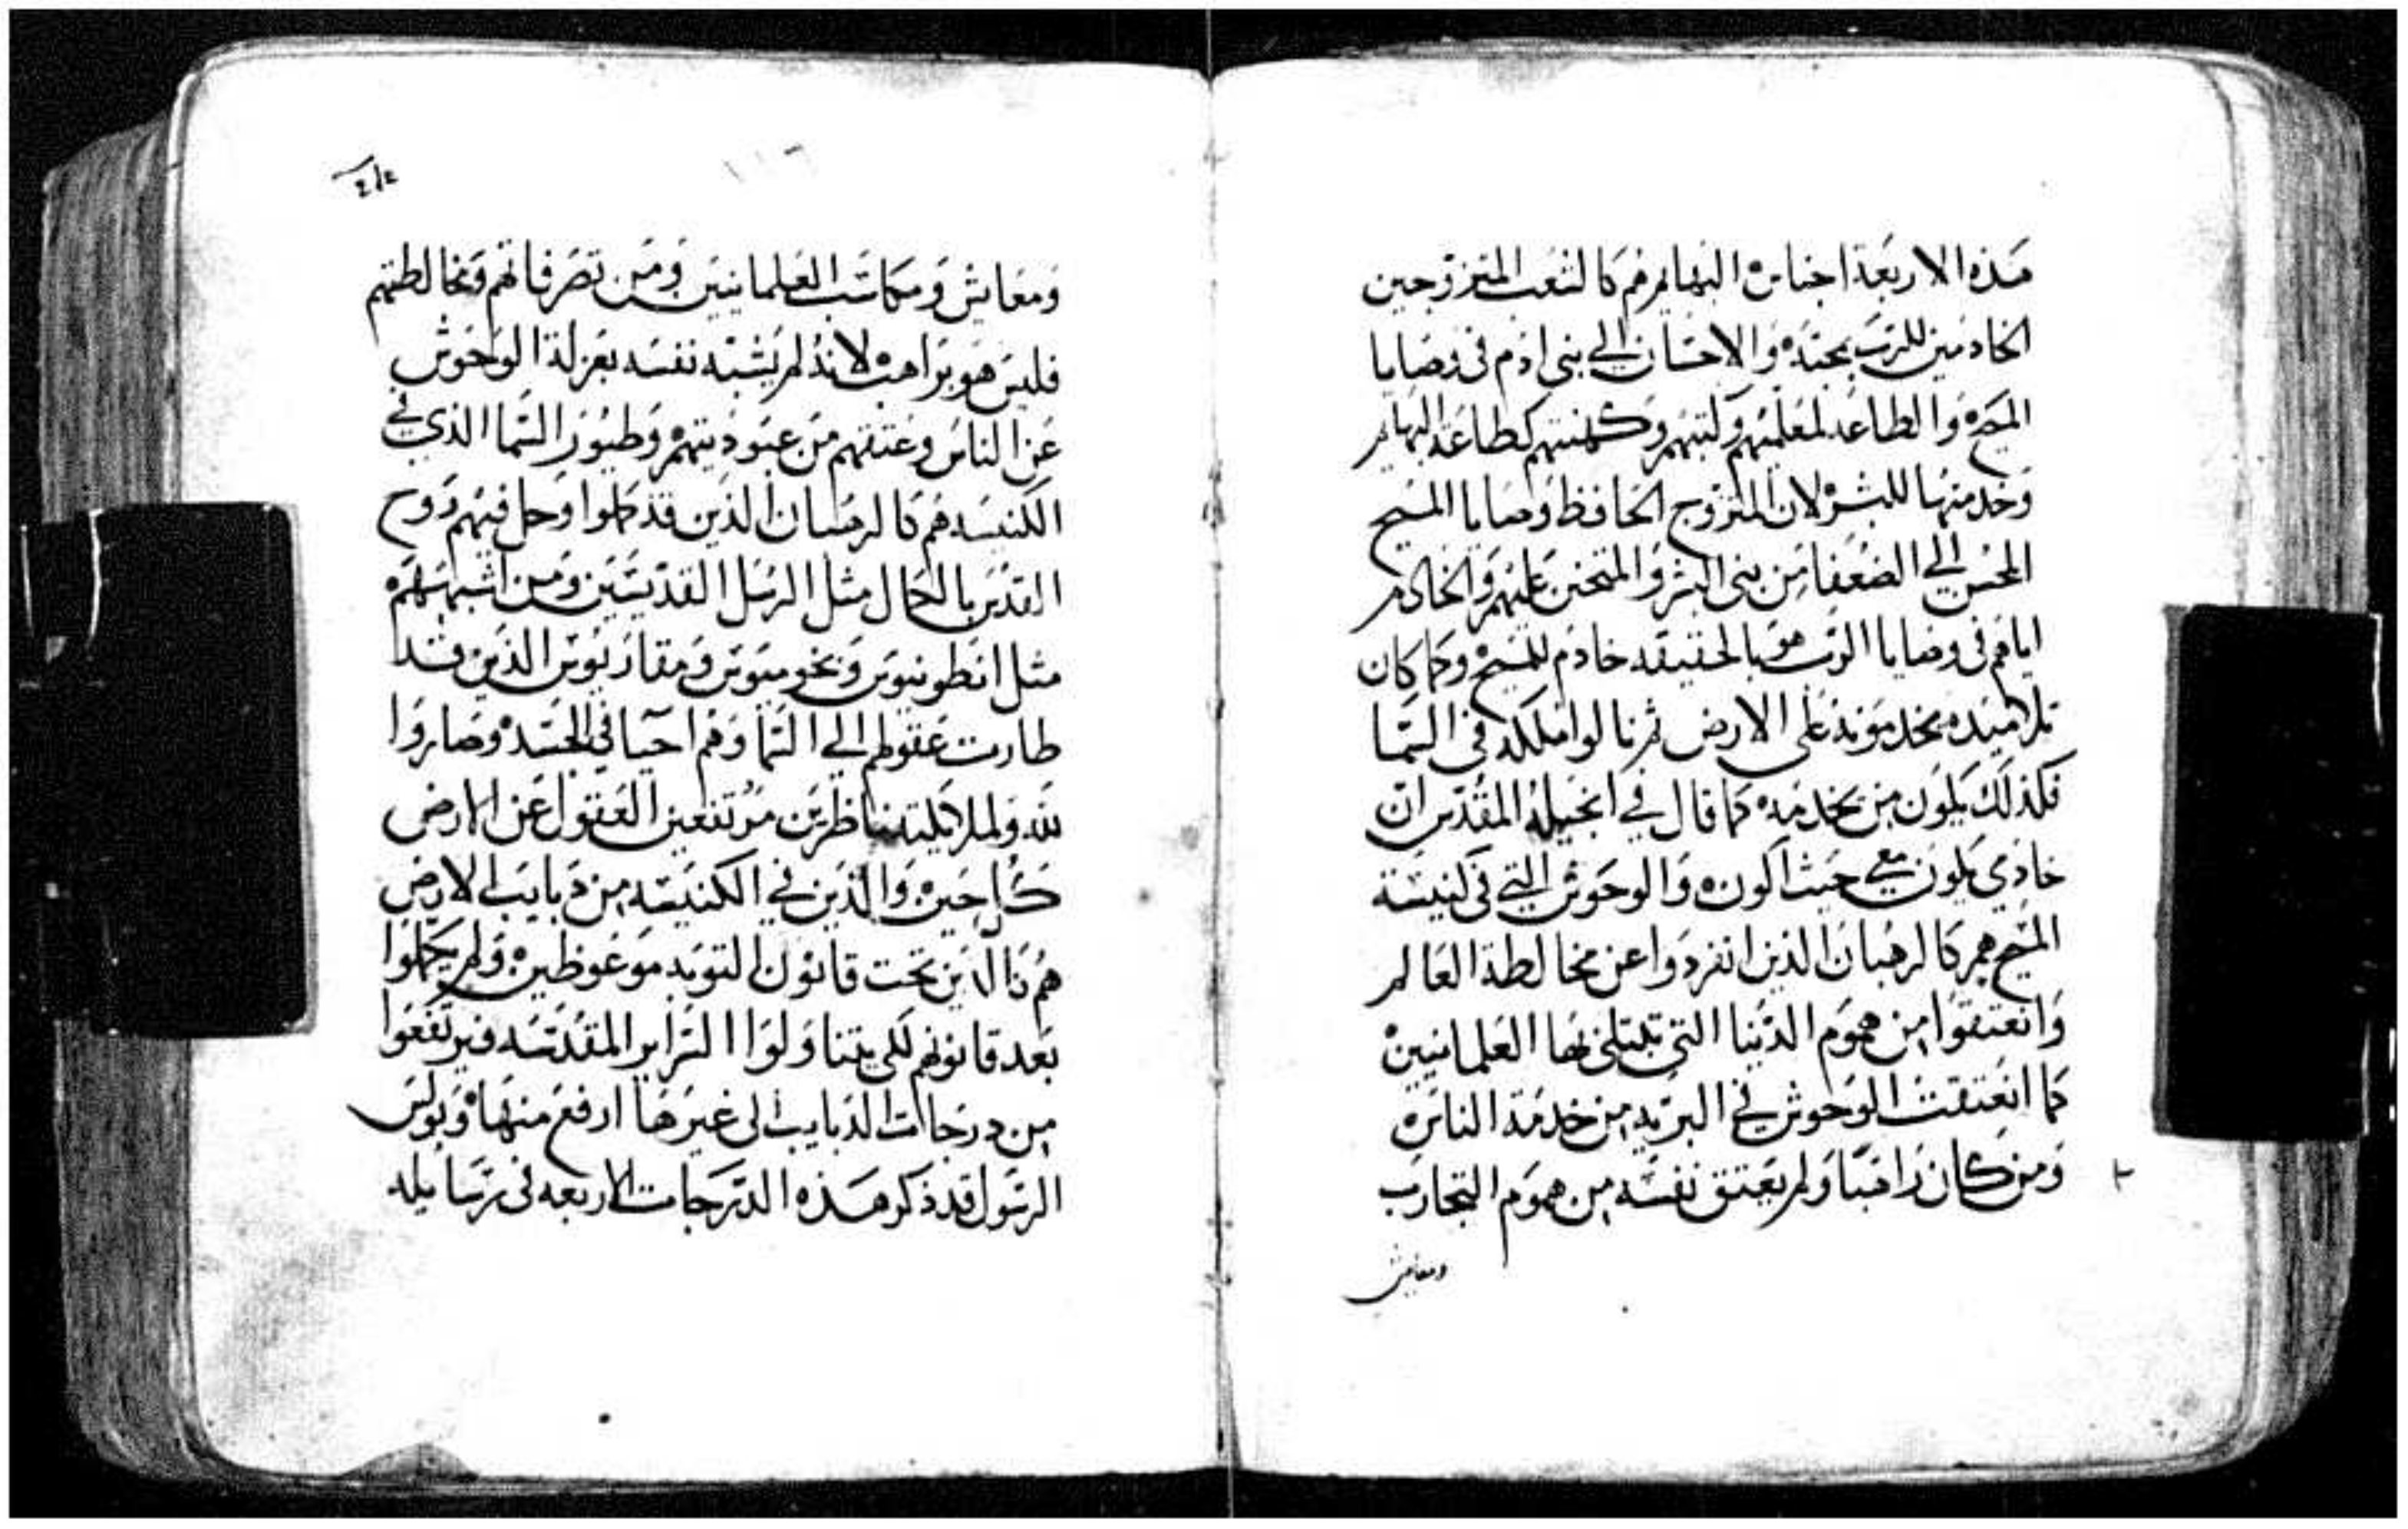 هذه الاربعة اجناس البهايم هم كالشعب المتزوجين
الخادمين للرب بمحبته والاحسان الي بني ادم في وصايا
المسيح والطاعه لمعلميهم وكهنتهم كطاعة البهايم
وخدمتها للبشر لان المتزوج الحافظ وصايا المسيح
المحسن الي الضعفا من بني البشر والمتحنن عليهم والخادم
اياهم في وصايا الرب هو بالحقيقه خادم للمسيح وكما كان
تلاميده يخدمونه علي الارض ثم نالوا ملكه في السما
فكذلك يكون من يخدمه كما قال في انجيله المقدس ان
خادمي يكون معي حيث اكون والوحوش التي في كنيسة
المسيح هم كالرهبان الذين انفردوا عن مخالطة العالم
وانعتقوا من هموم الدنيا التي تبتلي بها العلمانيين
كما انعتقت الوحوش في البريه من خدمة الناس
ومن كان راهبا ولم يعتق نفسه من هموم التجارب
ومعايش
ومعايش ومكاسب العلمانيين ومن تصرفاتهم ومخالطتهم
فليس هو براهب لانه لم يشبه نفسه بعزلة الوحوش
عن الناس وعتقهم من عبوديتهم وطيور السما الذي في
الكنيسه هم كالرهبان الذين قد كملوا وحل فيهم روح
القدس بالكمال مثل الرسل القديسين ومن اشبههم
مثل انطونيوس وبخوميوس ومقاريوس الذين قد
طارت عقولهم الي السما وهم احيا في الجسد وصاروا
لله ولملايكته ناظرين مرتفعين العقول عن الارض
كل حين والذين في الكنيسه من دبايب الارض
هم كالذين تحت قانون التوبه موعوظين ولم يكملوا
بعد قانونهم لكي يتناولوا السراير المقدسه فيرتفعوا
من درجات الدبايب الى غيرها ارفع منها وبولس
الرسول قد ذكر هذه الدرجات الاربعه في رسايله